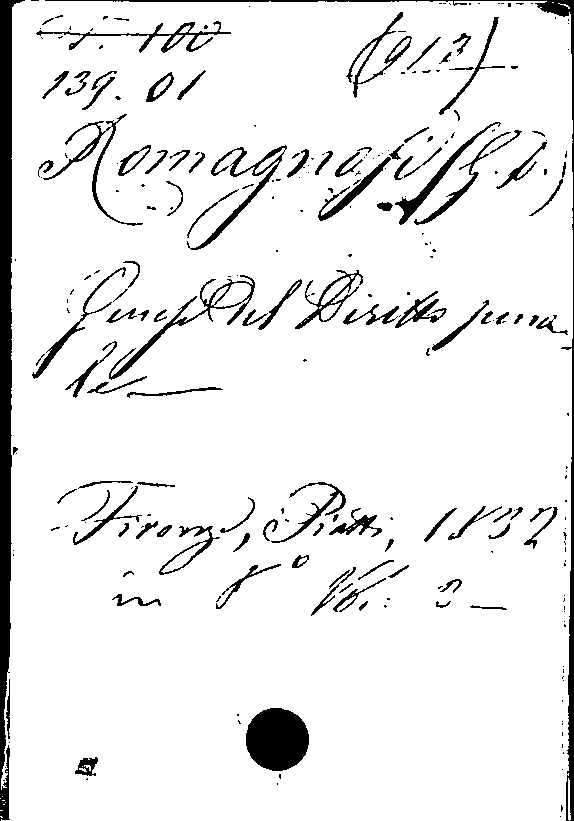 T. 100
139. 01
(913)
Romagnosi (G. D.)
Genesi Del Diritto pena-
le
Firenze, Piatti, 1832
in 8° Vol: 3